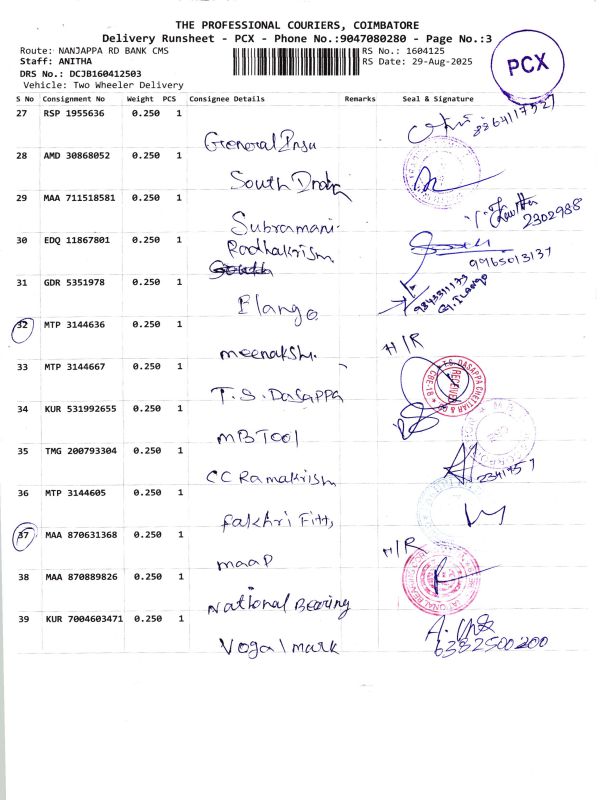 THE PROFESSIONAL COURIERS, COIMBATORE
Delivery Runsheet - PCX - Phone No.:9047080280 - Page No.:3
Route: NANJAPPA RD BANK CMS RS No.: 1604125
Staff: ANITHA RS Date: 29-Aug-2025
DRS No.: DCJB160412503
Vehicle: Two Wheeler Delivery
PCX
S No Consignment No Weight PCS Consignee Details Remarks Seal & Signature
27 RSP 1955636 0.250 1
General Insu
28 AMD 30868052 0.250 1
South India
29 MAA 711518581 0.250 1
2302988
Subramani.
30 EDQ 11867801 0.250 1
Radhakrism
South
9965013137
31 GDR 5351978 0.250 1
9843311173
G. ILango
Elango
32 MTP 3144636 0.250 1
H/R
meenakshi.
33 MTP 3144667 0.250 1
T.S. DASAPPA CHETTIAR &
RECEIVED
CBE-18
T.S. DaSAPPA
34 KUR 531992655 0.250 1
MBTOOl
35 TMG 200793304 0.250 1
CC Ramakrism
36 MTP 3144605 0.250 1
fakhri Fitt,
37 MAA 870631368 0.250 1
H/R
maap
38 MAA 870889826 0.250 1
National Bearing
39 KUR 7004603471 0.250 1
6382500200
Vogalmark